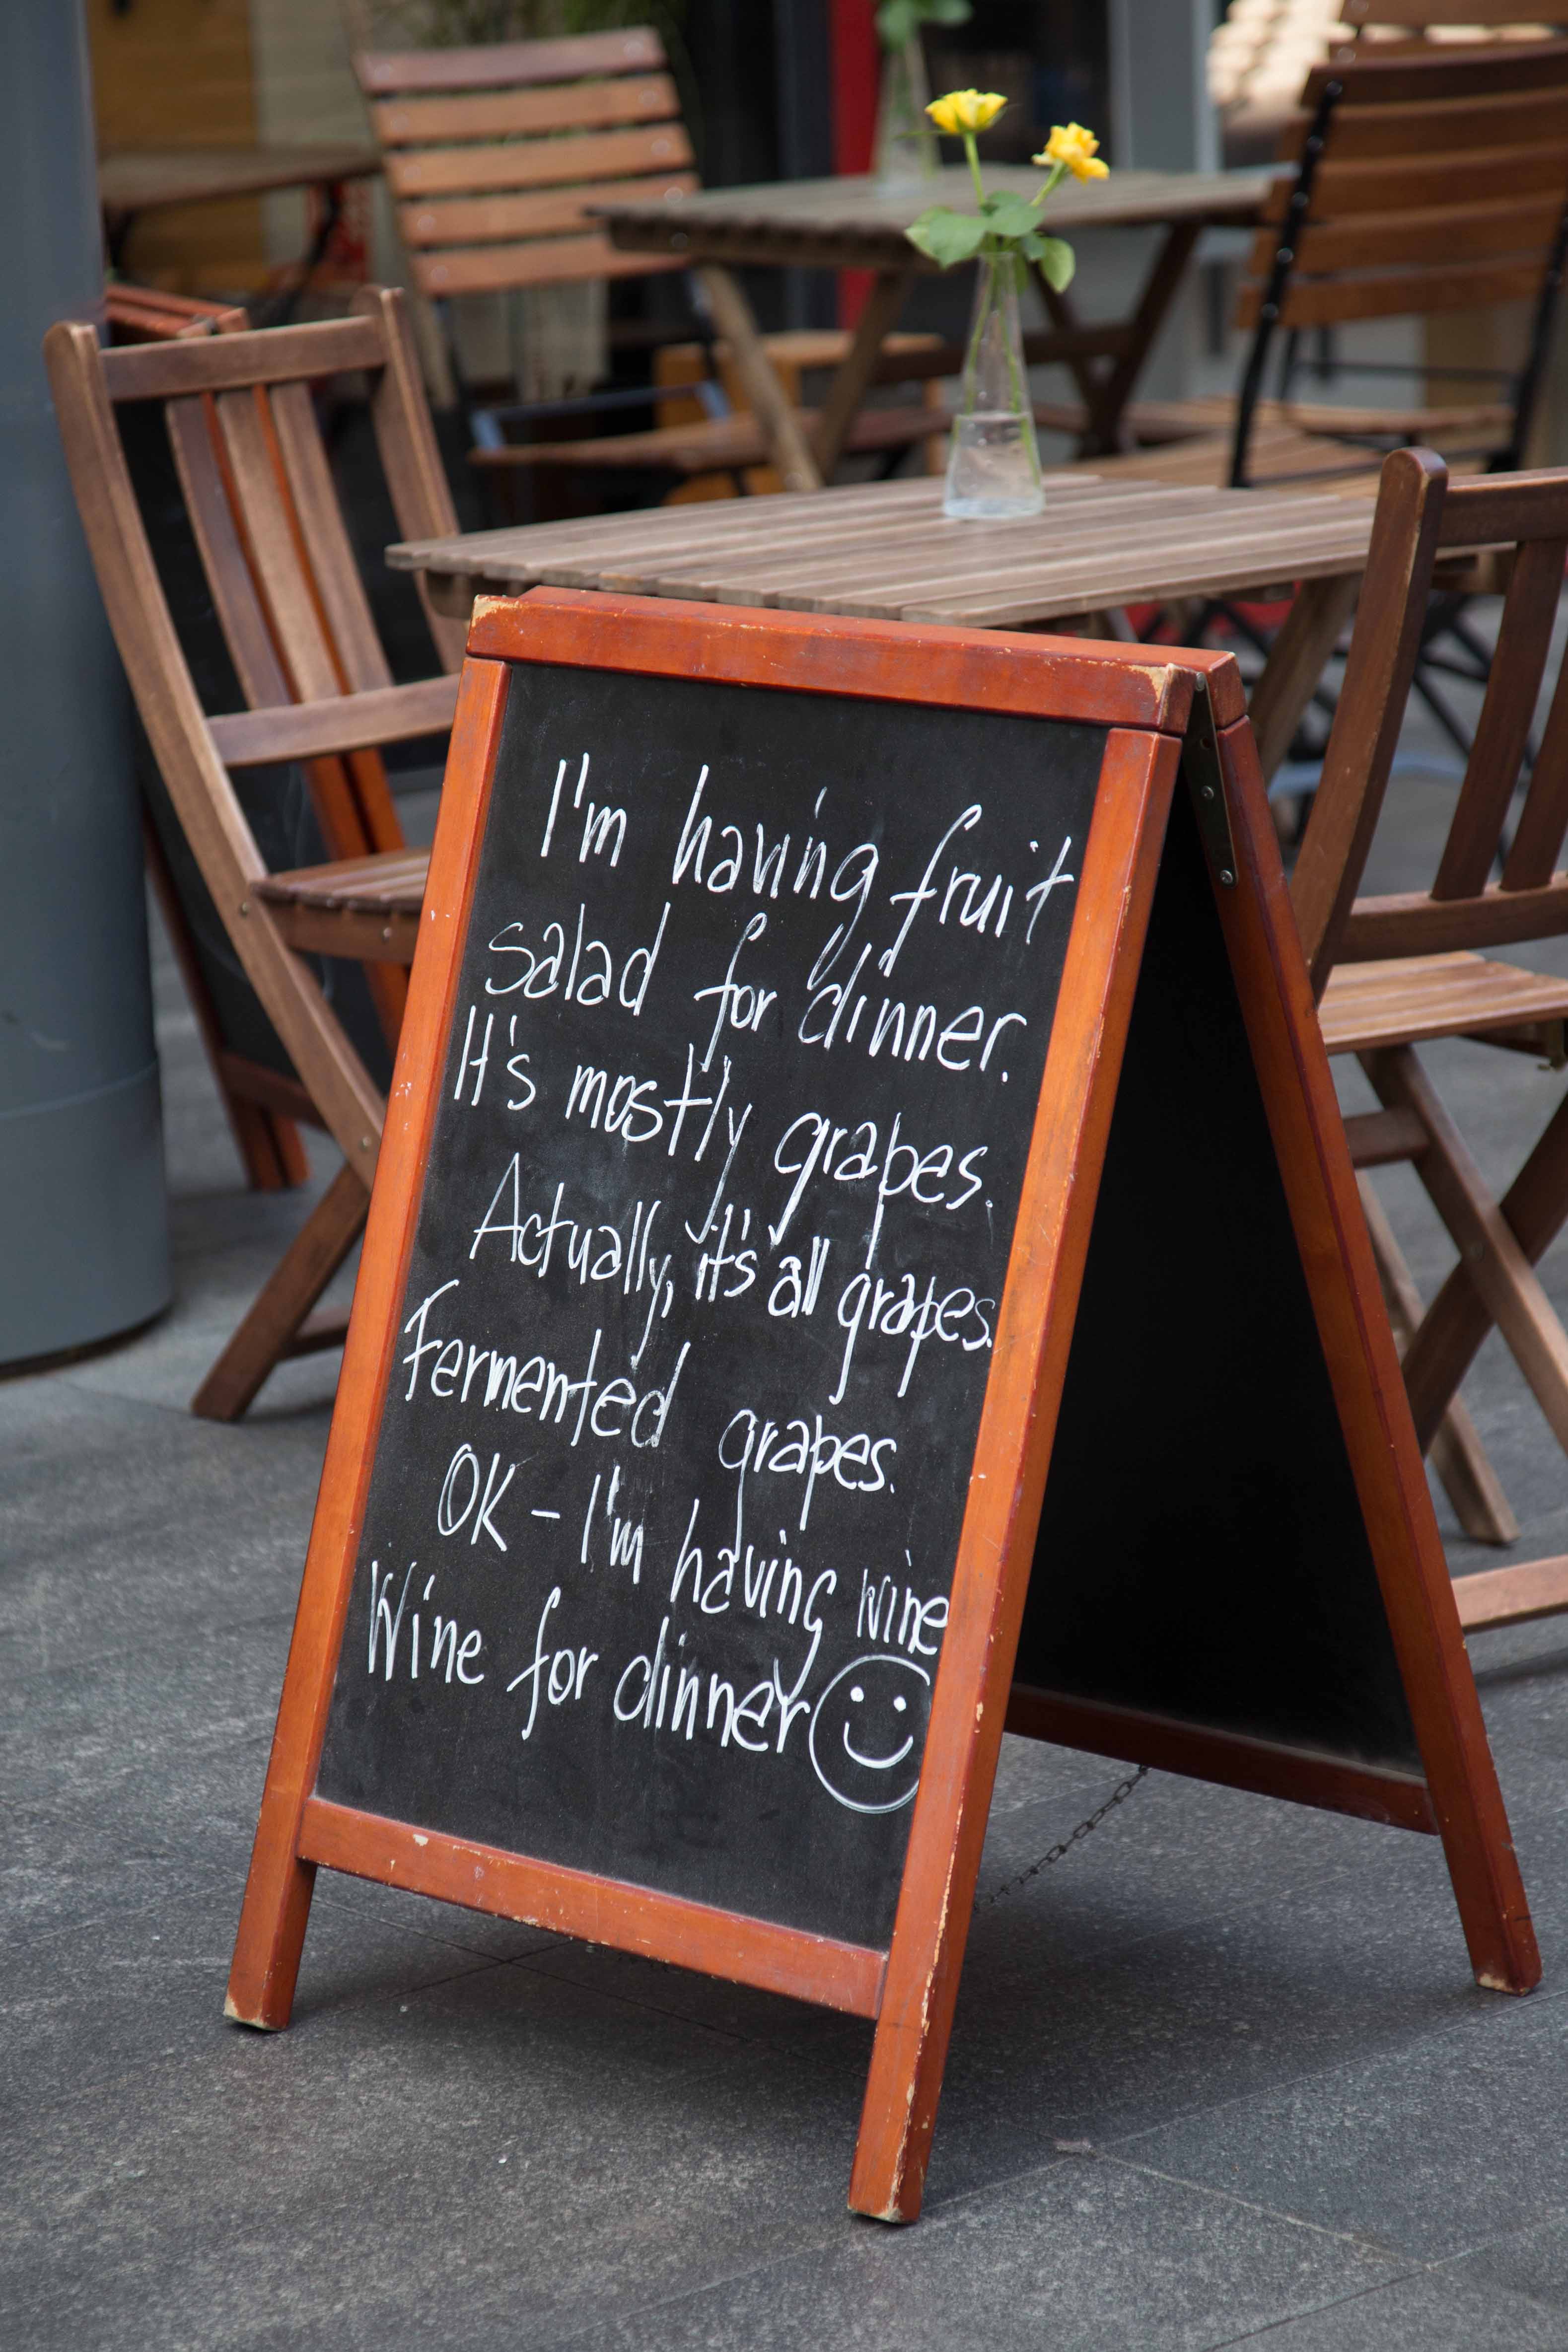 I'm having fruit
salad for dinner.
It's mostly grapes.
Actually, it's all grapes.
Fermented grapes.
OK - I'm having wine
Wine for dinner